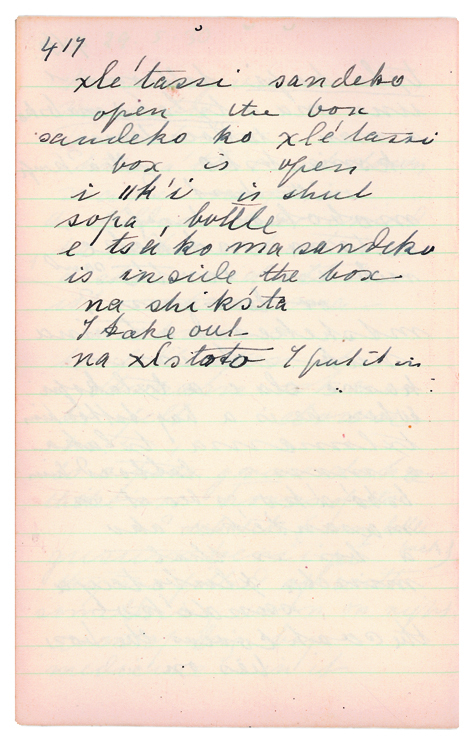 417
xlé'tassi sandeko
open the box
sandeko ko xlé'tassi
box is open
i "k'i is shut
sopa' bottle
e tsá'ko ma sandeko
is inside the box
na shik'sta
I take out
na xlstoto I put it in